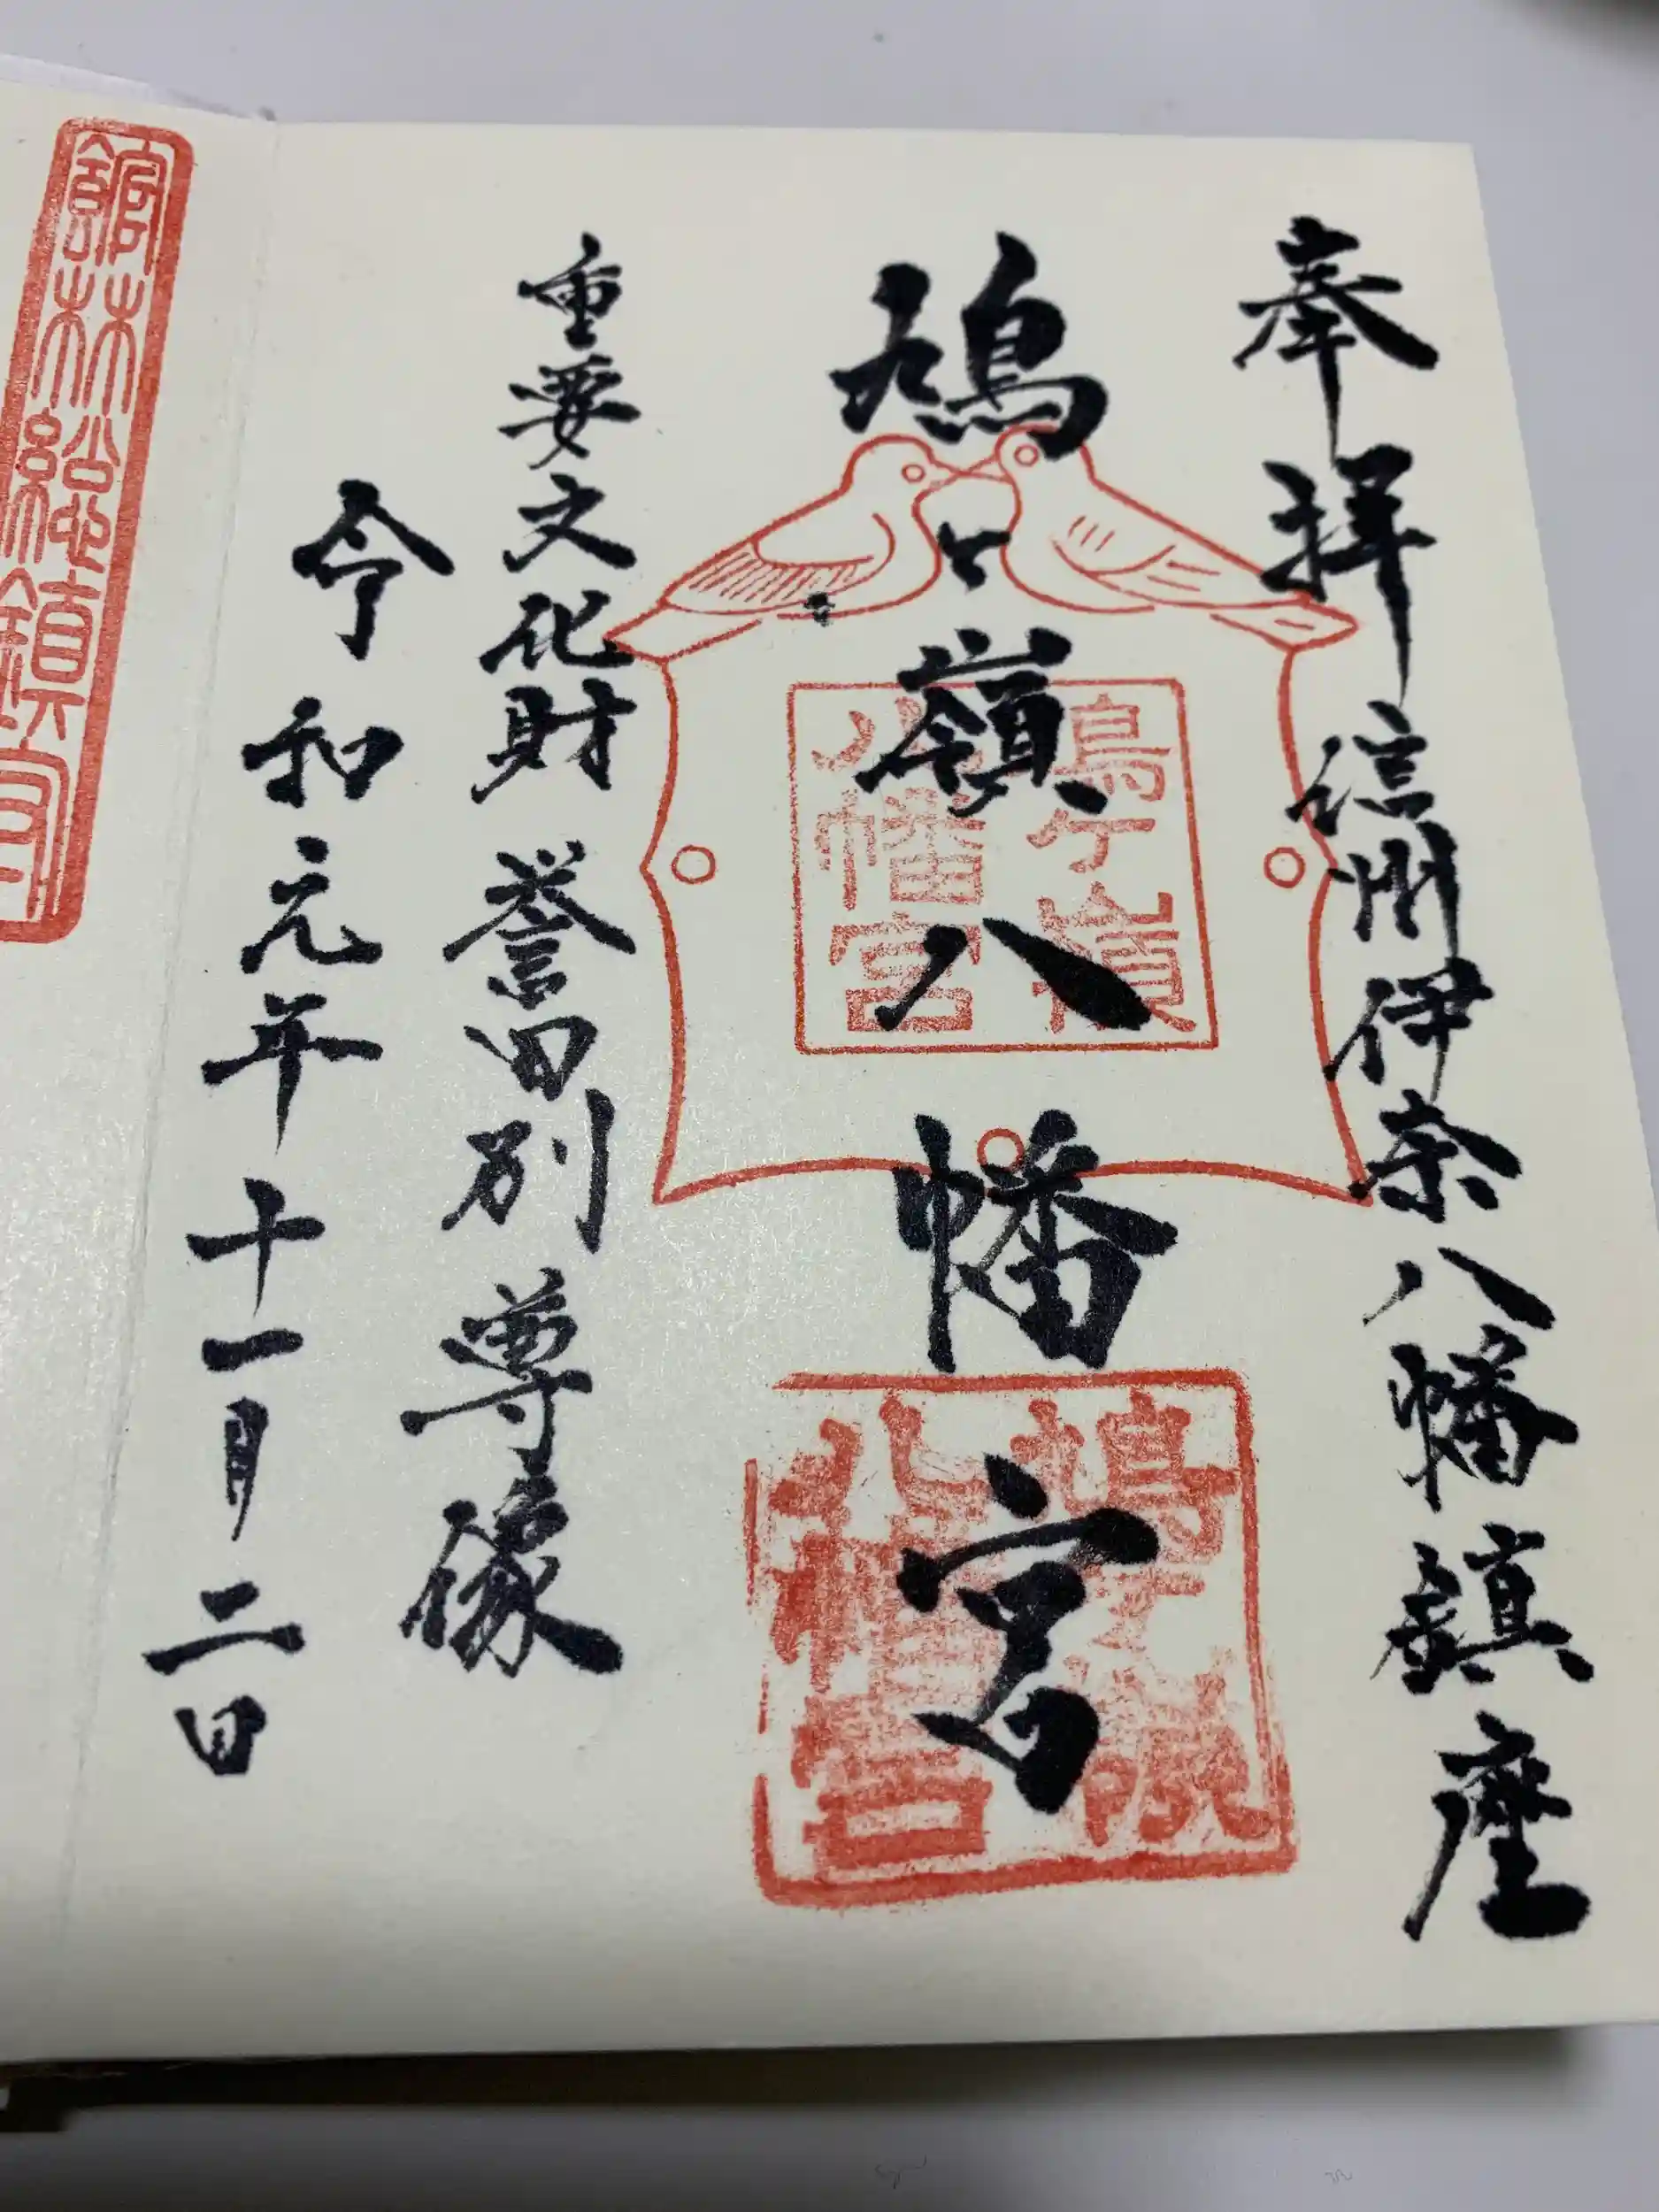 奉拝 信州伊奈八幡鎮座
鳩ヶ嶺八幡宮
鳩ヶ嶺
八幡宮
鳩ヶ嶺
八幡宮
重要文化財 誉田別尊像
令和元年十一月二日
館林総鎮守